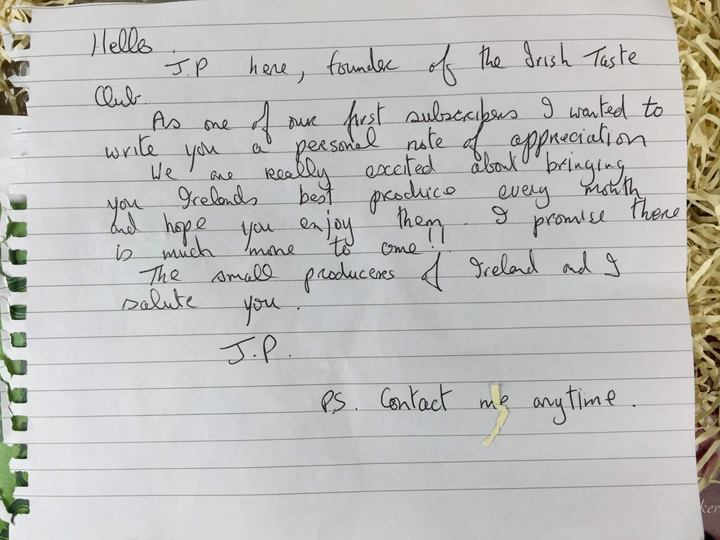 Hello.
J.P here, founder of the Irish Taste
Club.
As one of our first subscribers I wanted to
write you a personal note of appreciation
We are really excited about bringing
you Irelands best produce every month
and hope you enjoy them. I promise there
is much more to come!!
The small producers of Ireland and I
salute you.
J.P.
PS. Contact me anytime.